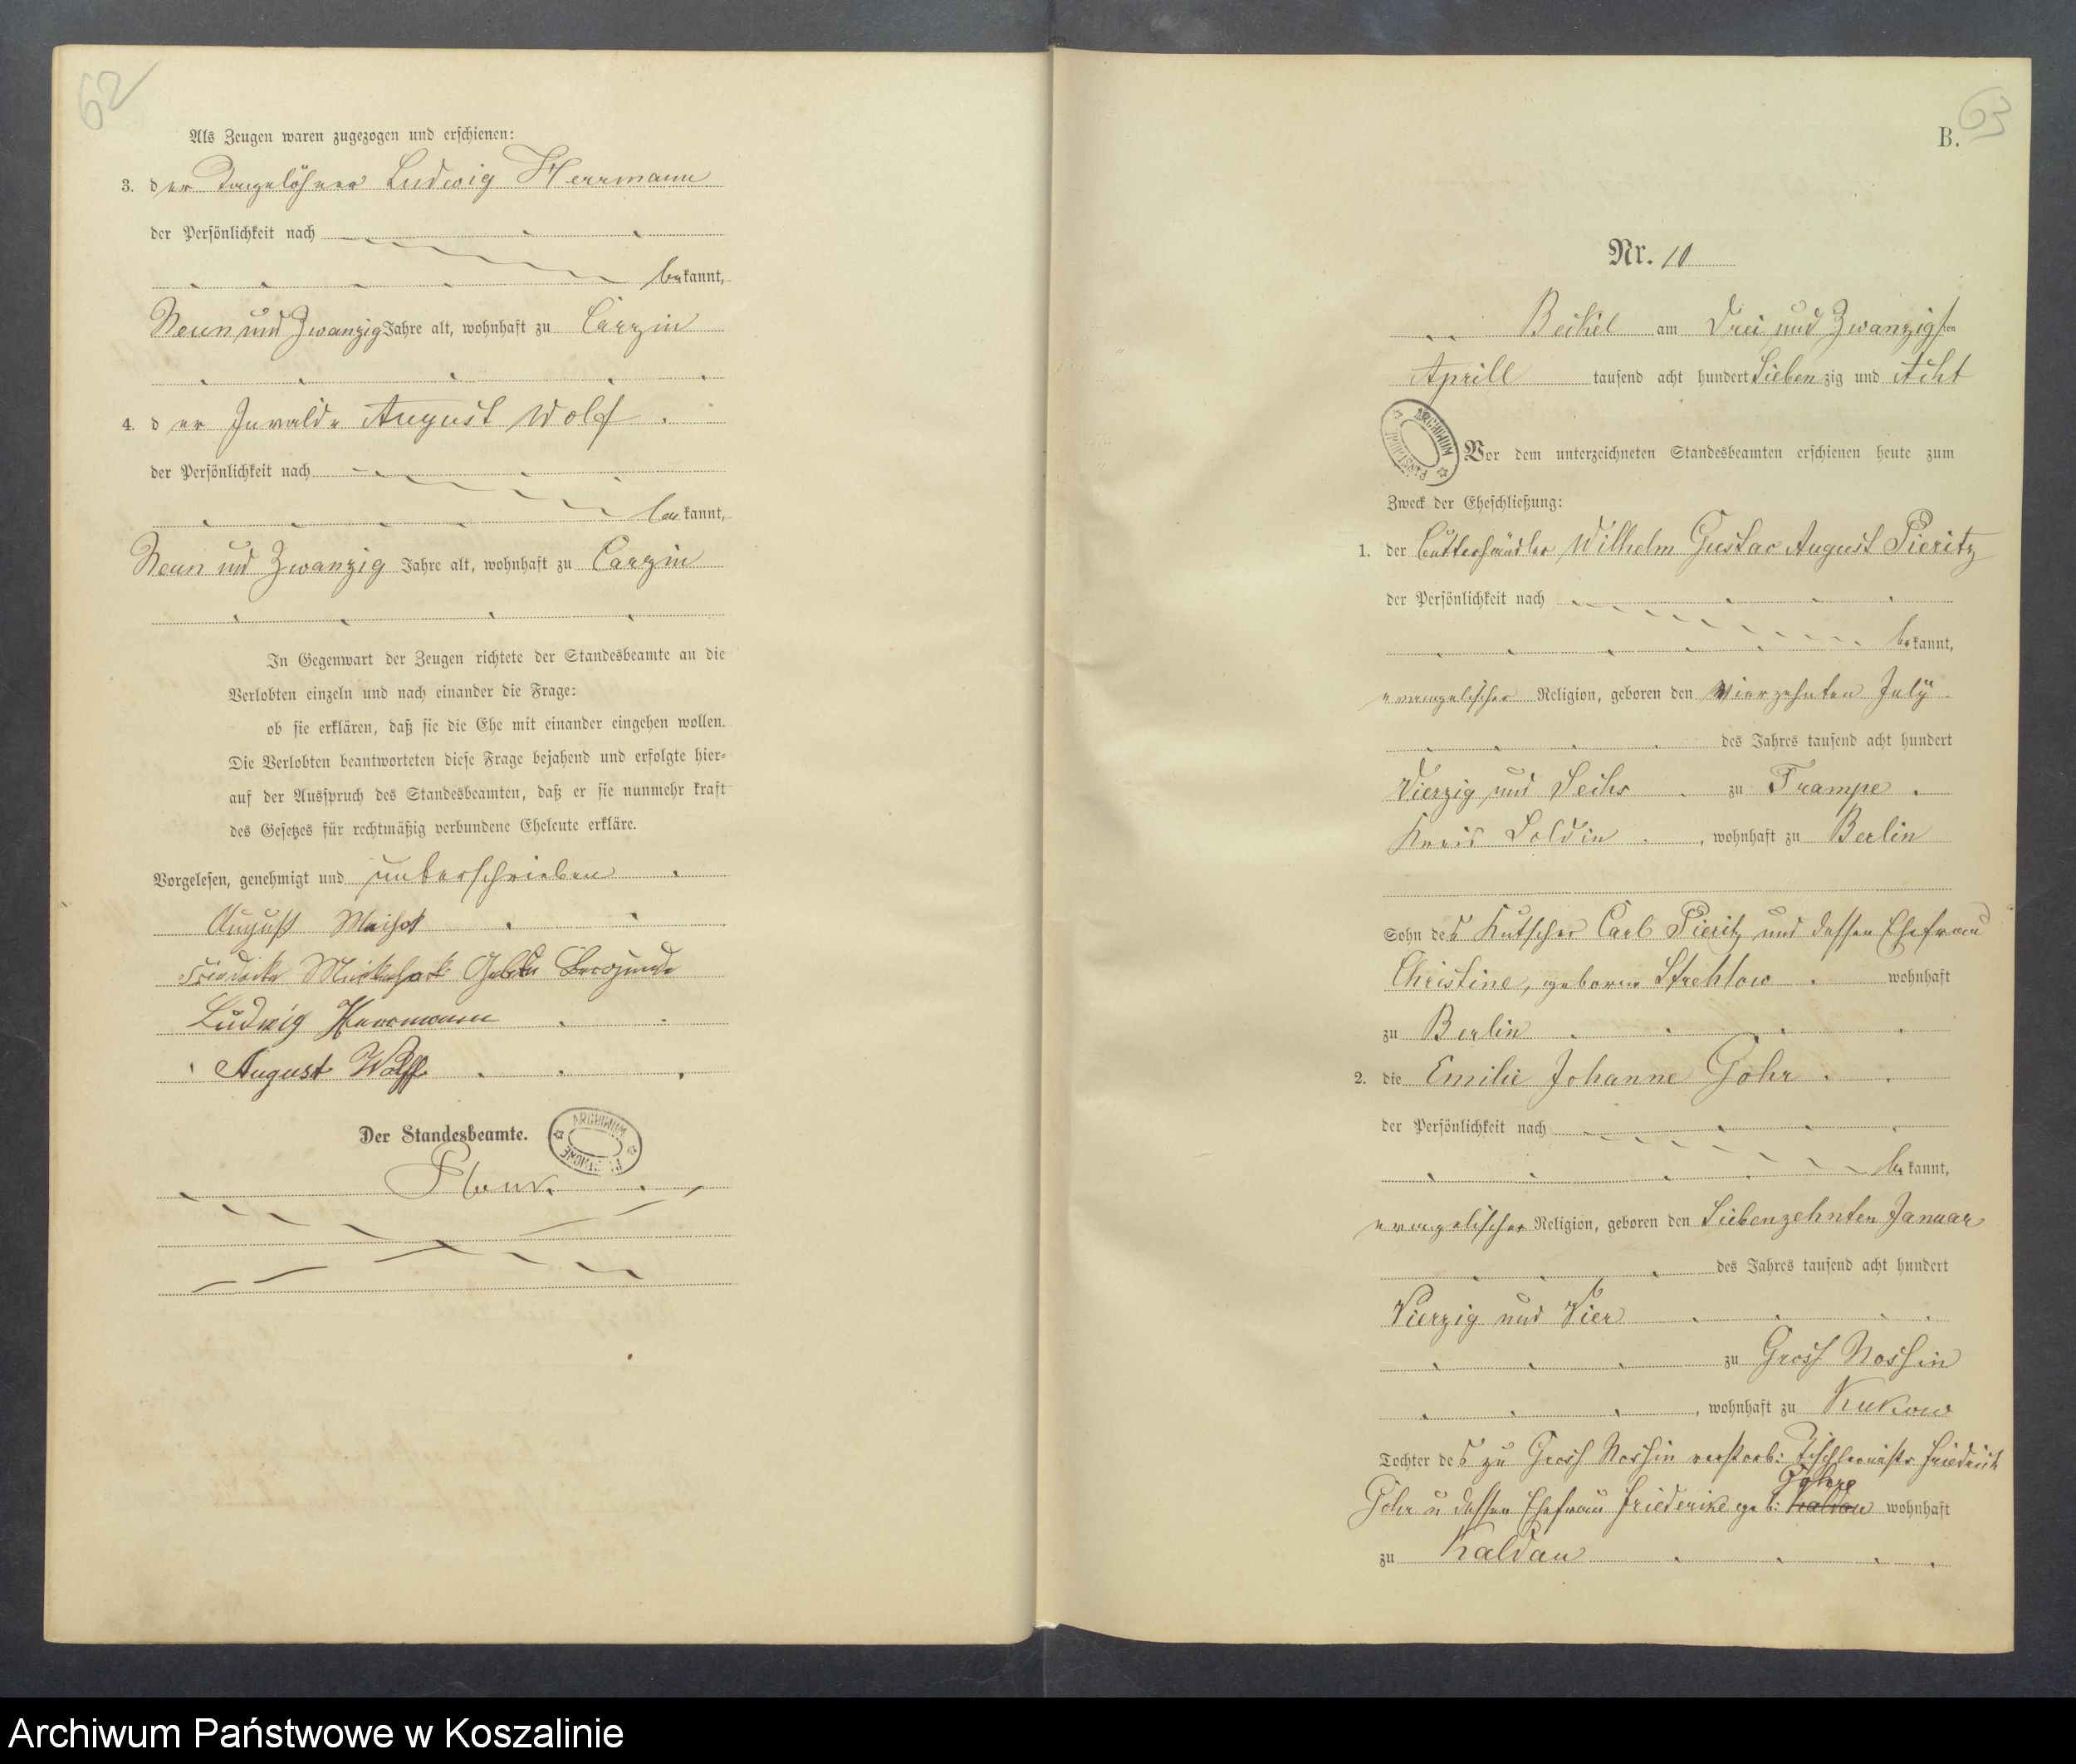 62
Als Zeugen waren zugezogen und erschienen:
3. der Tagelöhner Ludwig Herrmann
der Persönlichkeit nach
bekannt,
Neun und Zwanzig Jahre alt, wohnhaft zu Carzin
4. der Invalide August Wolf
der Persönlichkeit nach
bekannt,
Neun und Zwanzig Jahre alt, wohnhaft zu Carzin
In Gegenwart der Zeugen richtete der Standesbeamte an die
Verlobten einzeln und nach einander die Frage:
ob sie erklären, daß sie die Ehe mit einander eingehen wollen.
Die Verlobten beantworteten diese Frage bejahend und erfolgte hier=
auf der Ausspruch des Standesbeamten, daß er sie nunmehr kraft
des Gesetzes für rechtmäßig verbundene Eheleute erkläre.
Vorgelesen, genehmigt und unterschrieben
August
Ludwig Herrmann
August Wolff
Der Standesbeamte.
ARCHIWUM PAŃSTWOWE
63
B.
Nr. 10
am Drei und Zwanzigsten
Aprill tausend acht hundert Siebenzig und Acht
ARCHIWUM PAŃSTWOWE
Vor dem unterzeichneten Standesbeamten erschienen heute zum
Zweck der Eheschließung:
1. der Butterhändler Wilhelm Gustav August Pieritz
der Persönlichkeit nach
bekannt,
evangelischer Religion, geboren den Vierzehnten July
des Jahres tausend acht hundert
Vierzig und Sechs zu Trampe
Kreis Soldin, wohnhaft zu Berlin
Sohn des Kutscher Carl Pieritz und dessen Ehefrau
Christine, geborne Strehlow wohnhaft
zu Berlin
2. die Emilie Johanne Gohr
der Persönlichkeit nach
bekannt,
evangelischer Religion, geboren den Siebenzehnten Januar
des Jahres tausend acht hundert
Vierzig und Vier
zu Gross Nossin
, wohnhaft zu Kukow
Tochter des zu Gross Nossin verstorb: Tischlermeister Friedrich
Gohre
Gohr u dessen Ehefrau Friederike geb: Kaldau wohnhaft
zu Kaldau
Archiwum Państwowe w Koszalinie